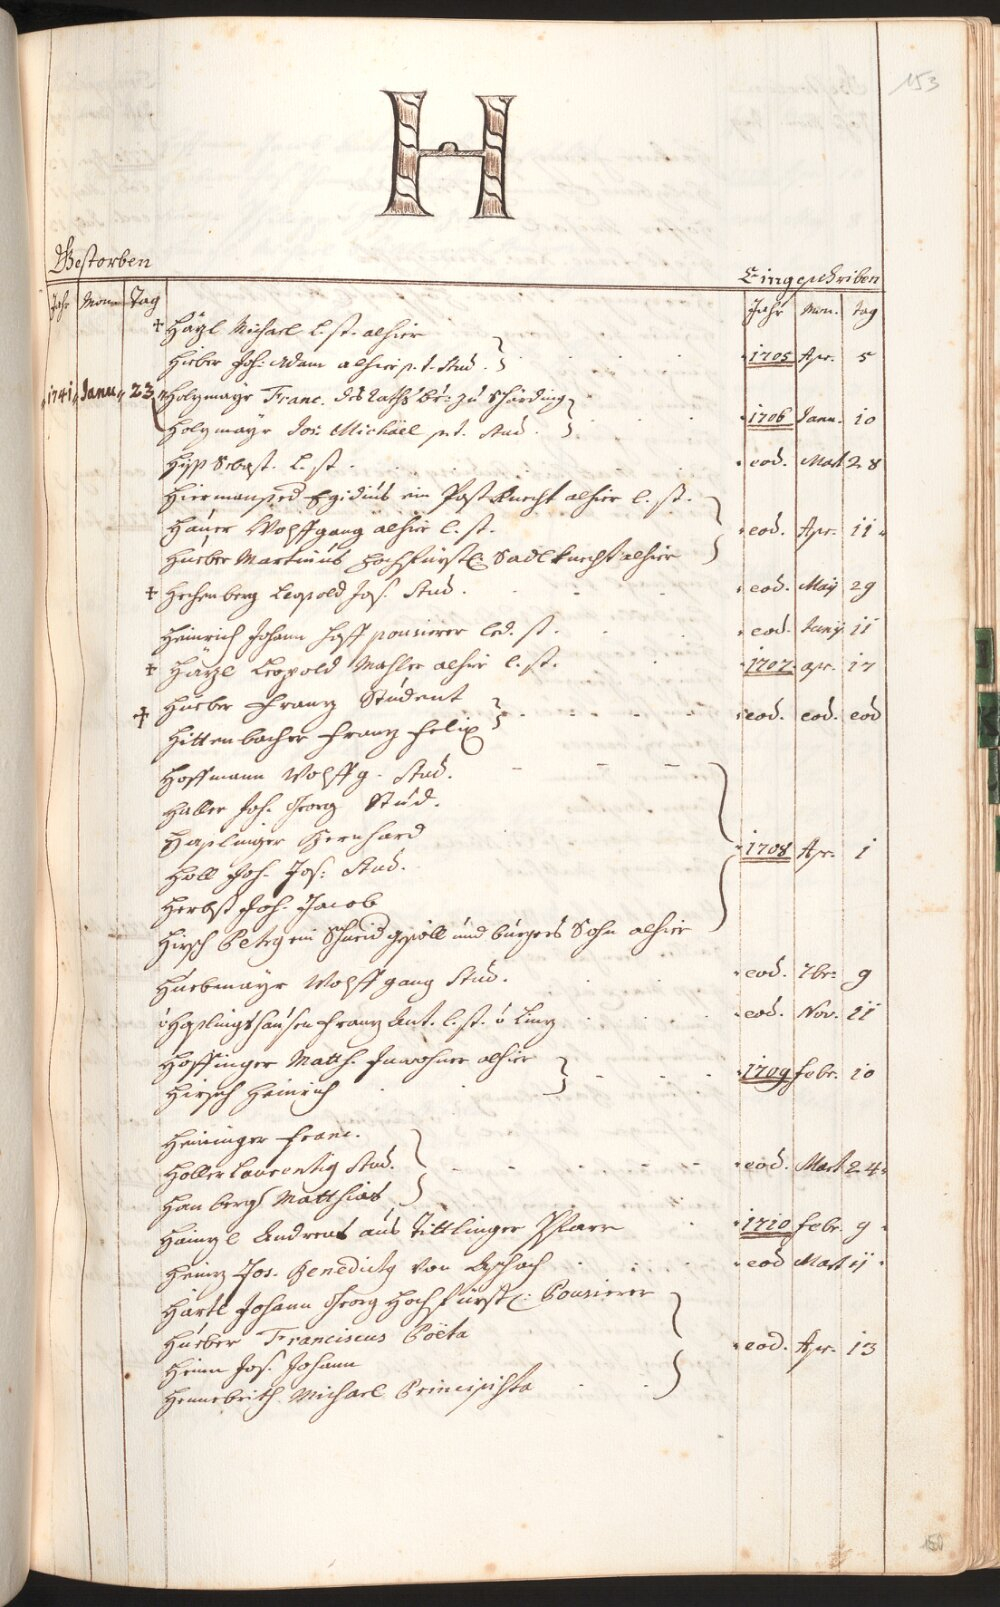 153
H
Gestorben
Eingeschriben
Jahr Mon. Tag
Jahr Mon. tag
+ Häzl Michael l. st. alhier
Hieber Joh: Adam alhier p. t. Stud. 1705 Apr. 5
1741 Janu. 23 Holzmayr Franc. des Raths zu Schärding
Holzmayr Jos: Michael p. t. Stud. 1706 Janu. 10
Sebast. l. st. eod. Mart 28
Egidius ein Postknecht alhier l. st.
Hauer Wolffgang alhier l. st. eod. Apr. 11
Hueber Martinus Hochfürstl: Sadlknecht alhier
+ Hechenberg Leopold Jos. Stud. eod. May 29
Heinrich Johann Hoff pousierer led. st. eod. Junij 11
+ Häzl Leopold Mahler alhier l. st. 1707 apr. 17
+ Hueber Franz Student eod. eod. eod
Hittenbacher Franz Felix
Hoffmann Wolffg. Stud.
Haller Joh. Georg Stud.
Haslinger Bernhard
Holl Joh. Jos: Stud. 1708 Apr. 1
Herbst Joh. Jacob
Hirsch ein Schneidgesöll und burgers Sohn alhier
Huebmayr Wolffgang Stud. eod. 7br: 9
Franz Ant. l. st. v Linz eod. Nov. 11
Höffinger Matth. Inwohner alhier 1709 febr. 10
Hirsch Heinrich
Heininger Franc.
Holler Laurentig Stud. eod. Mart 24
Hanberg Matthias
Andreas aus Tittlinger Pfarr 1710 febr. 9
Heinz Jos. Benedictg von Aschach eod Mart 11
Härtl Johann Georg Hochfürstl: Pousierer
Hueber Franciscus Poëta eod. Apr. 13
Heinn Jos. Johann
Hennebrith Michael Principista
150